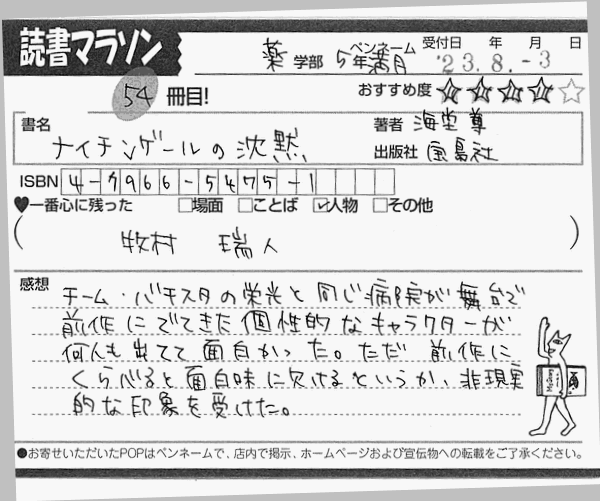 読書マラソン
薬 学部 5年 ペンネーム 満月 受付日 年 月 日 '23.8.-3
54 冊目! おすすめ度 ★★★★☆
書名 ナイチンゲールの沈黙 著者 海堂 尊
出版社 宝島社
ISBN 4-7966-5475-1
♥一番心に残った □場面 □ことば ☑人物 □その他
(牧村 瑞人)
感想 チーム・バチスタの栄光と同じ病院が舞台で
前作にでてきた個性的なキャラクターが
何人も出てて面白かった。ただ前作に
くらべると面白味に欠けるというか、非現実
的な印象を受けた。
●お寄せいただいたPOPはペンネームで、店内で掲示、ホームページおよび宣伝物への転載をご了承ください。